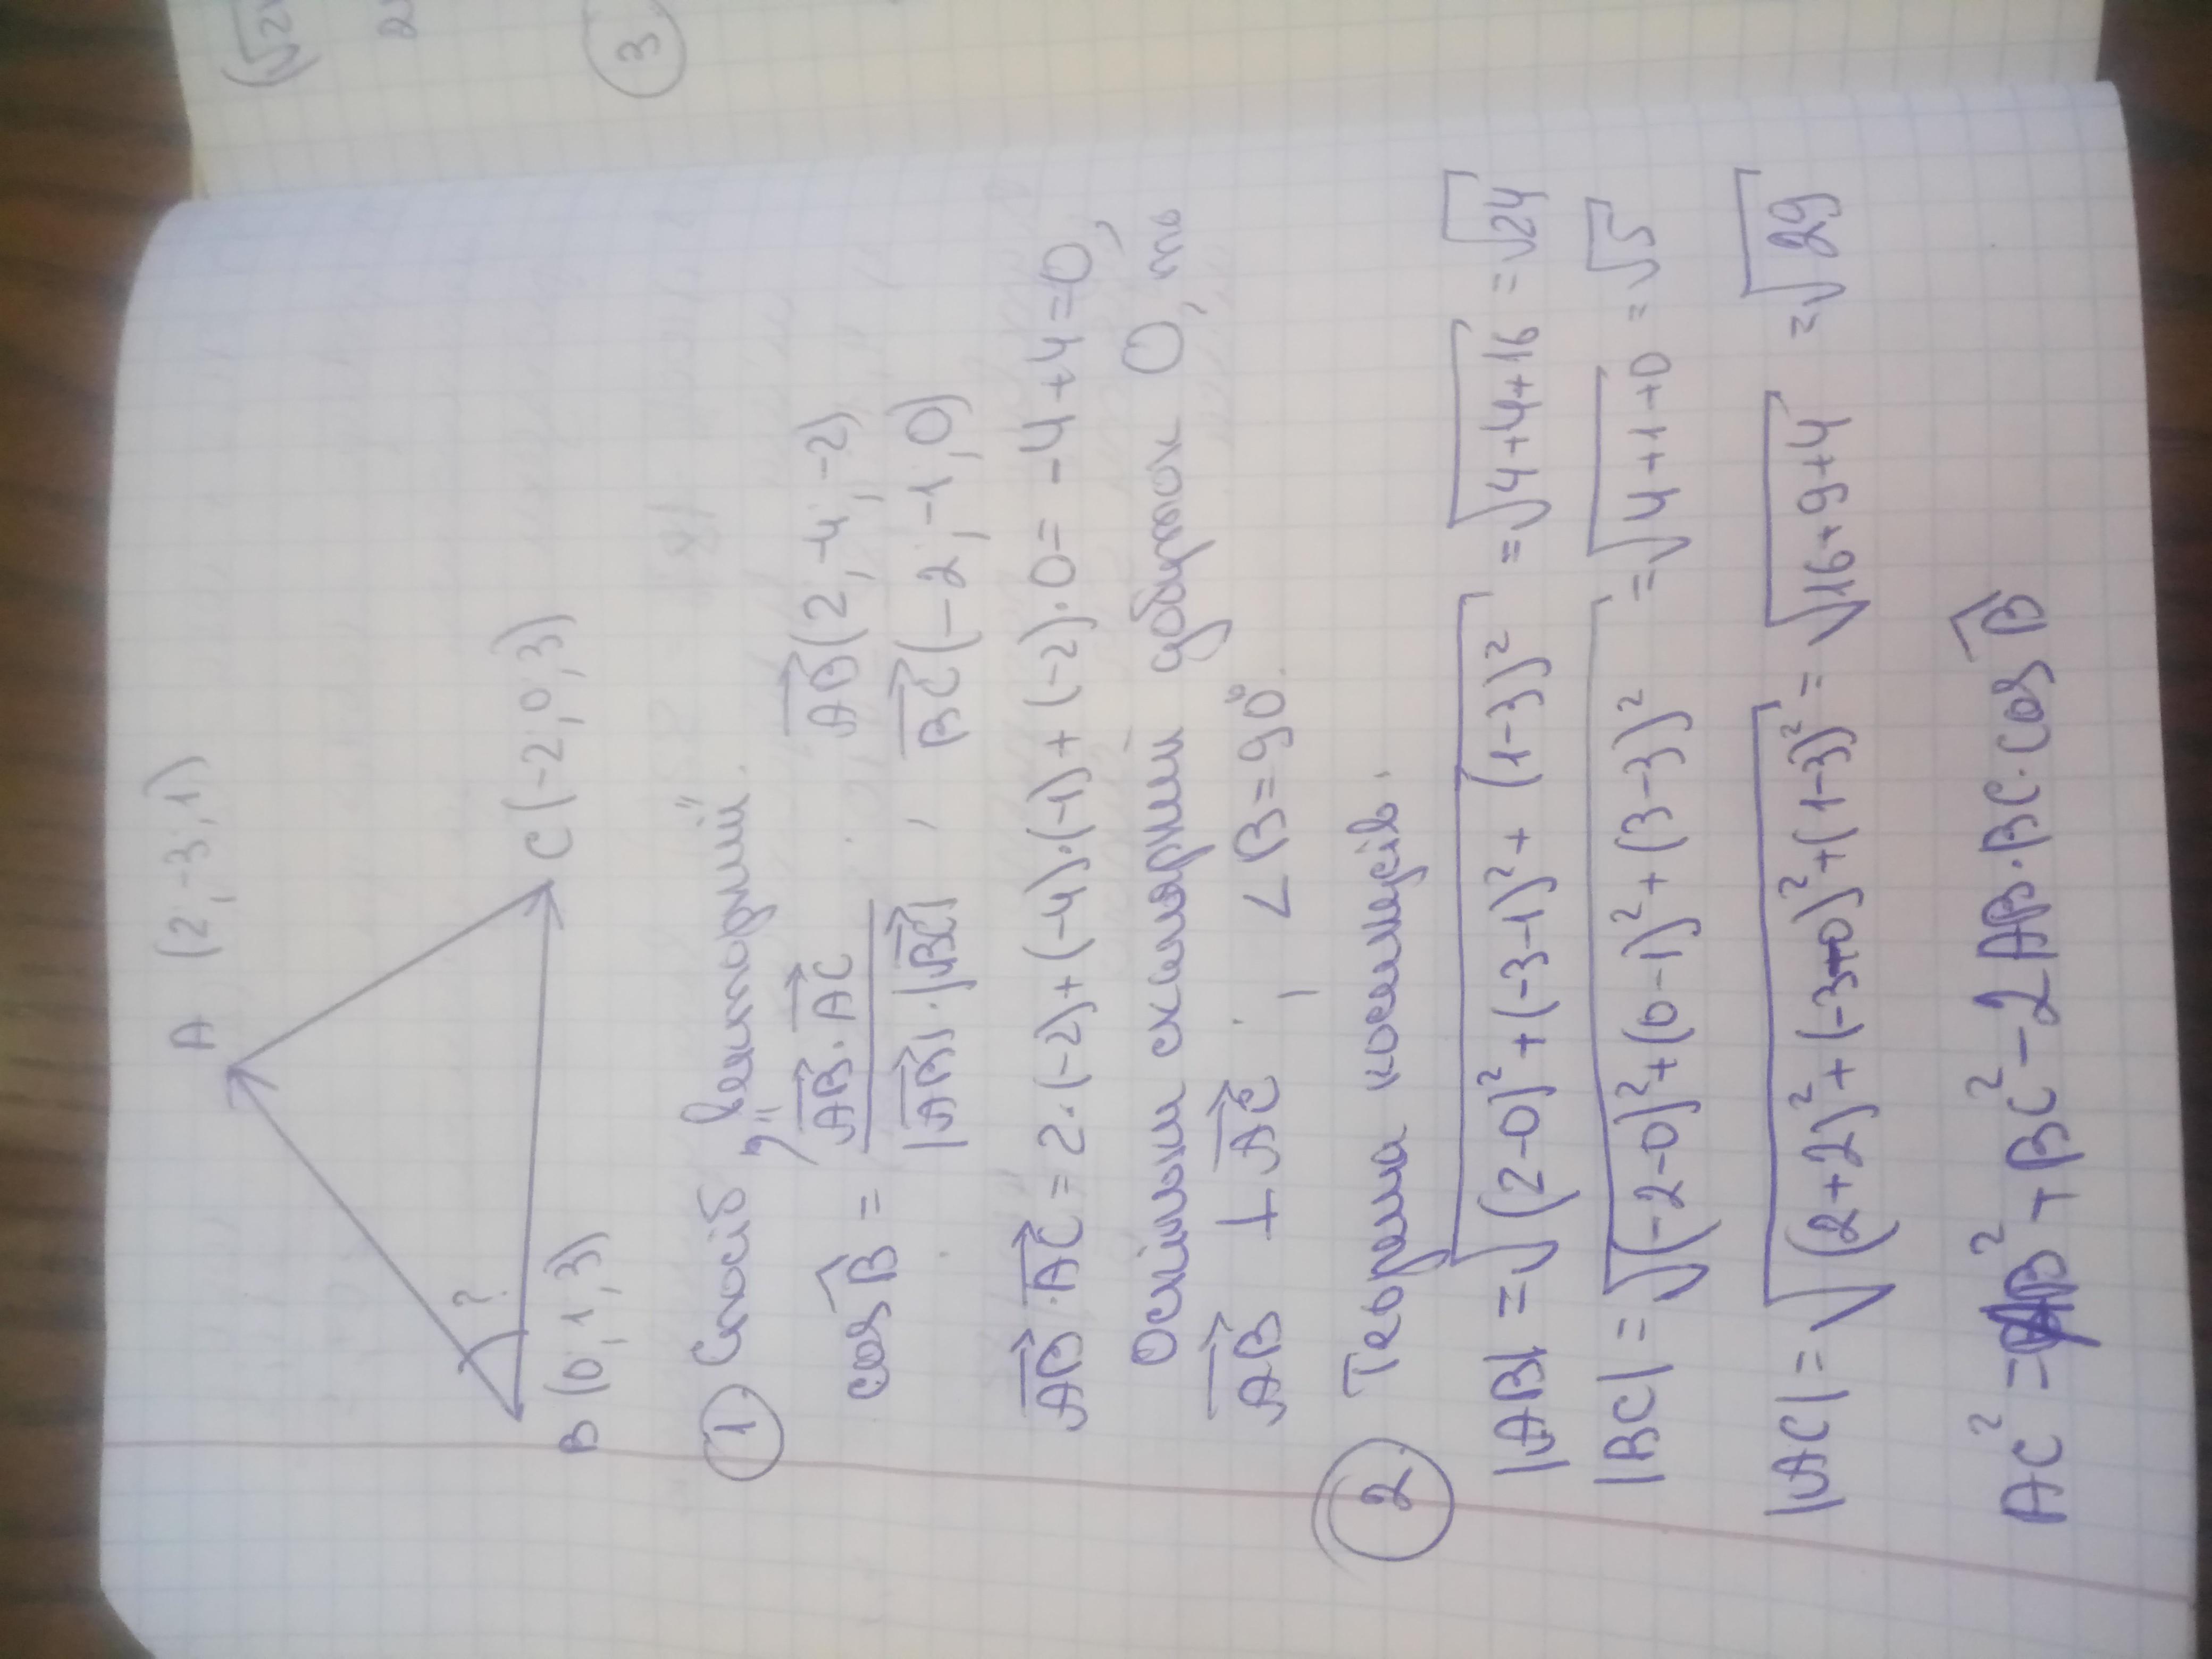 A (2; -3; 1)
?
B (0; 1; 3)
C (-2; 0; 3)
1. Спосіб "векторний".
cos B = AB · AC / |AB| · |BC| , AB (2; -4; -2)
BC (-2; -1; 0)
AB · AC = 2·(-2)+(-4)·(-1)+(-2)·0= -4+4=0,
Оскільки скалярний добуток 0, то
AB ⊥ AC , ∠B=90°.
2. Теорема косинусів.
|AB| = √(2-0)²+(-3-1)²+(1-3)² = √4+4+16 = √24
|BC| = √(-2-0)²+(0-1)²+(3-3)² = √4+1+0 = √5
|AC| = √(2+2)²+(-3+0)²+(1-3)² = √16+9+4 = √29
AC² = AB²+BC²-2AB·BC·cos B
(√24
3